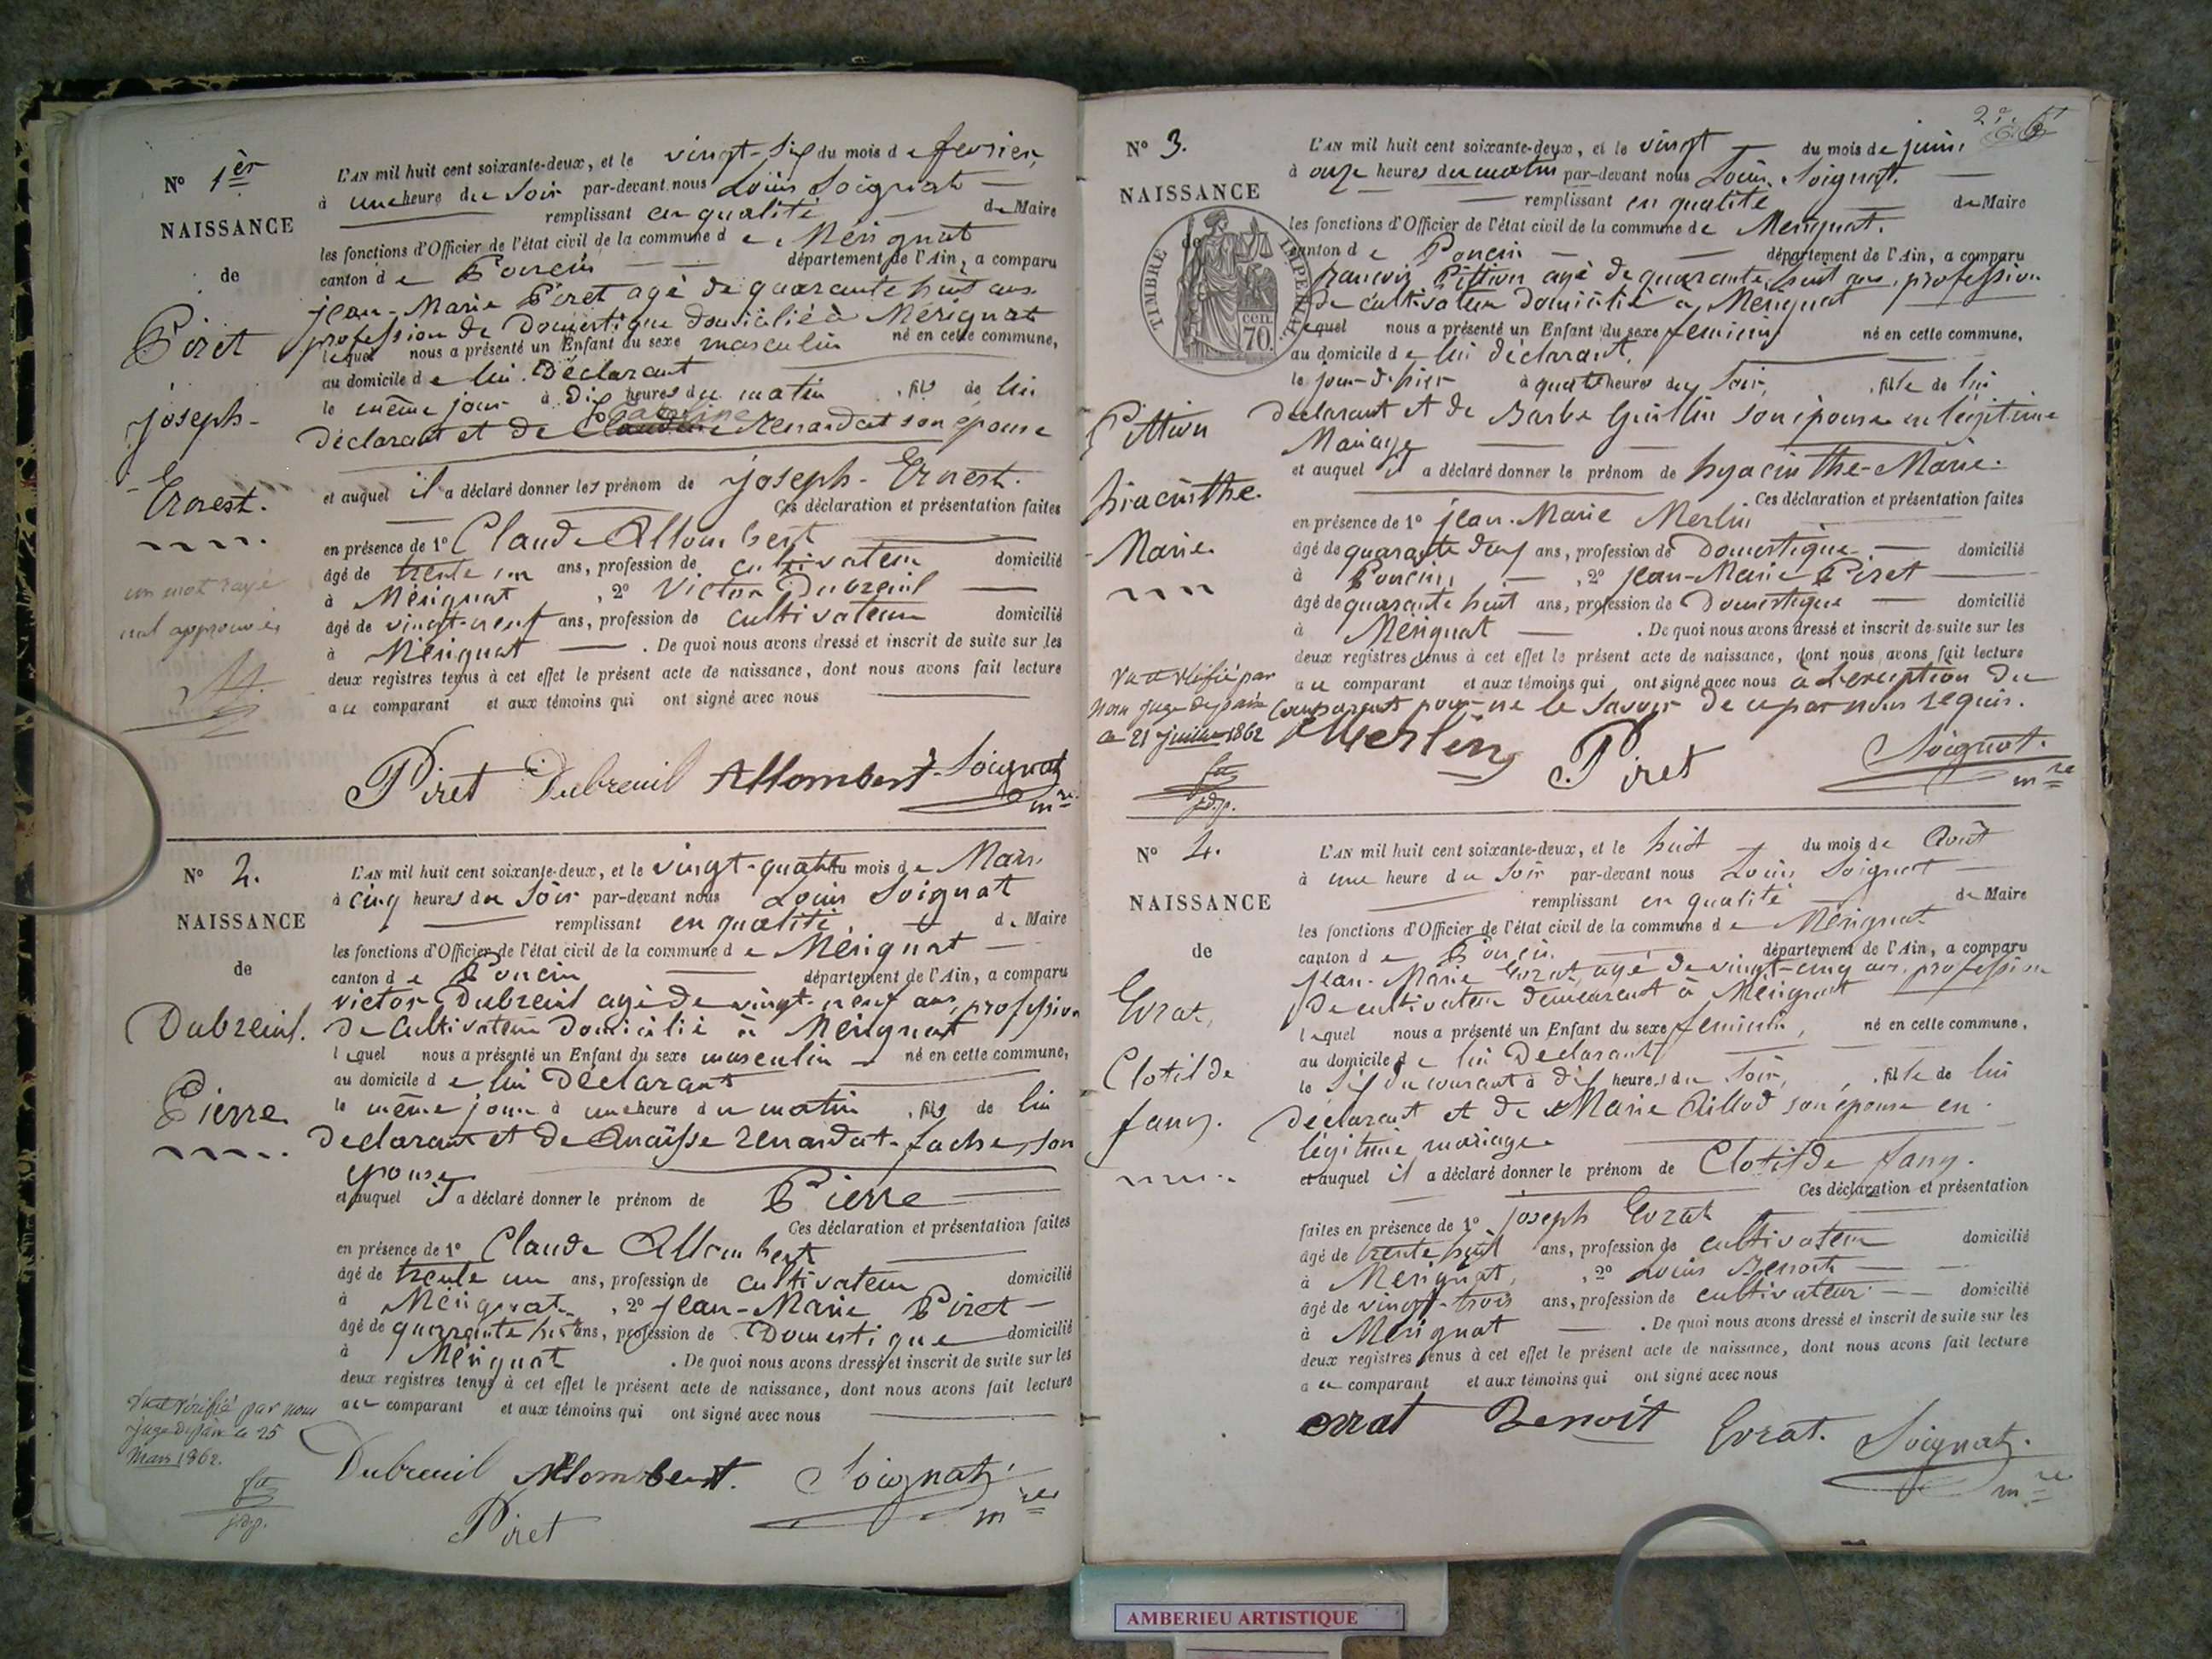 N° 1er
NAISSANCE
de
Piret
joseph-
Ernest.
un mot rayé
nul approuvé
L'AN mil huit cent soixante-deux, et le vingt-six du mois de fevrier
à une heure du soir par-devant nous Louis Soignat
remplissant en qualité de Maire
les fonctions d'Officier de l'état civil de la commune de Mérignat
canton de Poncin département de l'Ain, a comparu
jean-Marie Piret agé de quarante huit ans
profession de Domestique domicilié à Mérignat
lequel nous a présenté un Enfant du sexe masculin né en cette commune,
au domicile de lui Déclarant
le même jour à dix heures du matin, fils de lui
Caroline
déclarant et de Claudine Renardat son épouse
et auquel il a déclaré donner les prénom de joseph-Ernest.
Ces déclaration et présentation faites
en présence de 1° Claude Allombert
âgé de trente un ans, profession de cultivateur domicilié
à Mérignat, 2° Victor Dubreuil
âgé de vingt-neuf ans, profession de cultivateur domicilié
à Mérignat. De quoi nous avons dressé et inscrit de suite sur les
deux registres tenus à cet effet le présent acte de naissance, dont nous avons fait lecture
au comparant et aux témoins qui ont signé avec nous
Piret Dubreuil Allombert Soignat
mre
N° 2.
NAISSANCE
de
Dubreuil.
Pierre
Vu et vérifié par nous
juge de paix le 25
Mars 1862.
j.d.p.
L'AN mil huit cent soixante-deux, et le vingt-quatre du mois de Mars
à cinq heures du soir par-devant nous Louis Soignat
remplissant en qualité de Maire
les fonctions d'Officier de l'état civil de la commune de Mérignat
canton de Poncin département de l'Ain, a comparu
victor Dubreuil agé de vingt-neuf ans, profession
de cultivateur domicilié à Mérignat
lequel nous a présenté un Enfant du sexe masculin né en cette commune,
au domicile de lui Déclarant
le même jour à une heure du matin, fils de lui
déclarant et de Anaïsse renardat-fache, son
épouse
et auquel il a déclaré donner le prénom de Pierre
Ces déclaration et présentation faites
en présence de 1° Claude Allombert
âgé de trente un ans, profession de cultivateur domicilié
à Mérignat, 2° jean-Marie Piret
âgé de quarante huit ans, profession de Domestique domicilié
à Mérignat. De quoi nous avons dressé et inscrit de suite sur les
deux registres tenus à cet effet le présent acte de naissance, dont nous avons fait lecture
au comparant et aux témoins qui ont signé avec nous
Dubreuil Allombert. Soignat
mre
Piret
N° 3.
NAISSANCE
de
TIMBRE IMPERIAL
70 cen.
Pittion
hiacinthe.
Marie.
Vu et vérifié par
nous juge de paix
le 21 juillet 1862
j.d.p.
L'AN mil huit cent soixante-deux, et le vingt du mois de juin
à onze heures du matin par-devant nous Louis Soignat.
remplissant en qualité de Maire
les fonctions d'Officier de l'état civil de la commune de Mérignat.
canton de Poncin département de l'Ain, a comparu
françois Pittion agé de quarante huit ans, profession
de cultivateur domicilié à Mérignat
lequel nous a présenté un Enfant du sexe feminin né en cette commune,
au domicile de lui déclarant,
le jour d'hier à quatre heures du soir, fille de lui
déclarant et de Barbe Guillin son épouse en légitime
Mariage
et auquel il a déclaré donner le prénom de hyacinthe-Marie.
Ces déclaration et présentation faites
en présence de 1° jean-Marie Merlin
âgé de quarante neuf ans, profession de Domestique domicilié
à Poncin, 2° jean-Marie Piret
âgé de quarante huit ans, profession de Domestique domicilié
à Mérignat. De quoi nous avons dressé et inscrit de suite sur les
deux registres tenus à cet effet le présent acte de naissance, dont nous avons fait lecture
au comparant et aux témoins qui ont signé avec nous à l'exception du
comparant pour ne le savoir de ce par nous requis.
Merlin Piret Soignat.
mre
N° 4.
NAISSANCE
de
Evrat,
Clotilde
fany.
L'AN mil huit cent soixante-deux, et le huit du mois de Août
à une heure du soir par-devant nous Louis Soignat
remplissant en qualité de Maire
les fonctions d'Officier de l'état civil de la commune de Mérignat
canton de Poncin département de l'Ain, a comparu
jean-Marie Evrat, agé de vingt-cinq ans, profession
de cultivateur demeurant à Mérignat
lequel nous a présenté un Enfant du sexe feminin, né en cette commune,
au domicile de lui Déclarant
le six du courant à dix heures du soir, fille de lui
déclarant et de Marie Aillod son épouse en
légitime mariage.
et auquel il a déclaré donner le prénom de Clotilde fany.
Ces déclaration et présentation
faites en présence de 1° joseph Evrat
âgé de trente huit ans, profession de cultivateur domicilié
à Mérignat, 2° Louis Benoit
âgé de vingt-trois ans, profession de cultivateur domicilié
à Mérignat. De quoi nous avons dressé et inscrit de suite sur les
deux registres tenus à cet effet le présent acte de naissance, dont nous avons fait lecture
au comparant et aux témoins qui ont signé avec nous
evrat Benoit Evrat. Soignat.
mre
AMBERIEU ARTISTIQUE